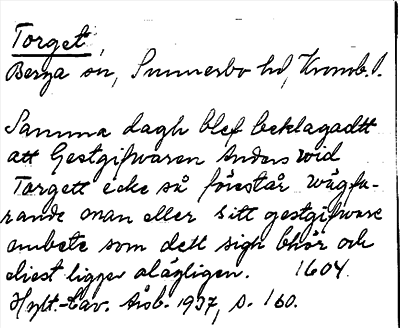 Torget,
Berga sn, Sunnerbo hd, Kronb. l.
Samma dagh blef beklagadtt
att Gestgifwaren Anders wid
Torgett icke så förestår wägfa-
rande man eller sitt gestgifware
embete som dett sigh bhör och
diest ligger ålägligen. 1604.
Hylt.-Cav. Årsb. 1937, s. 160.